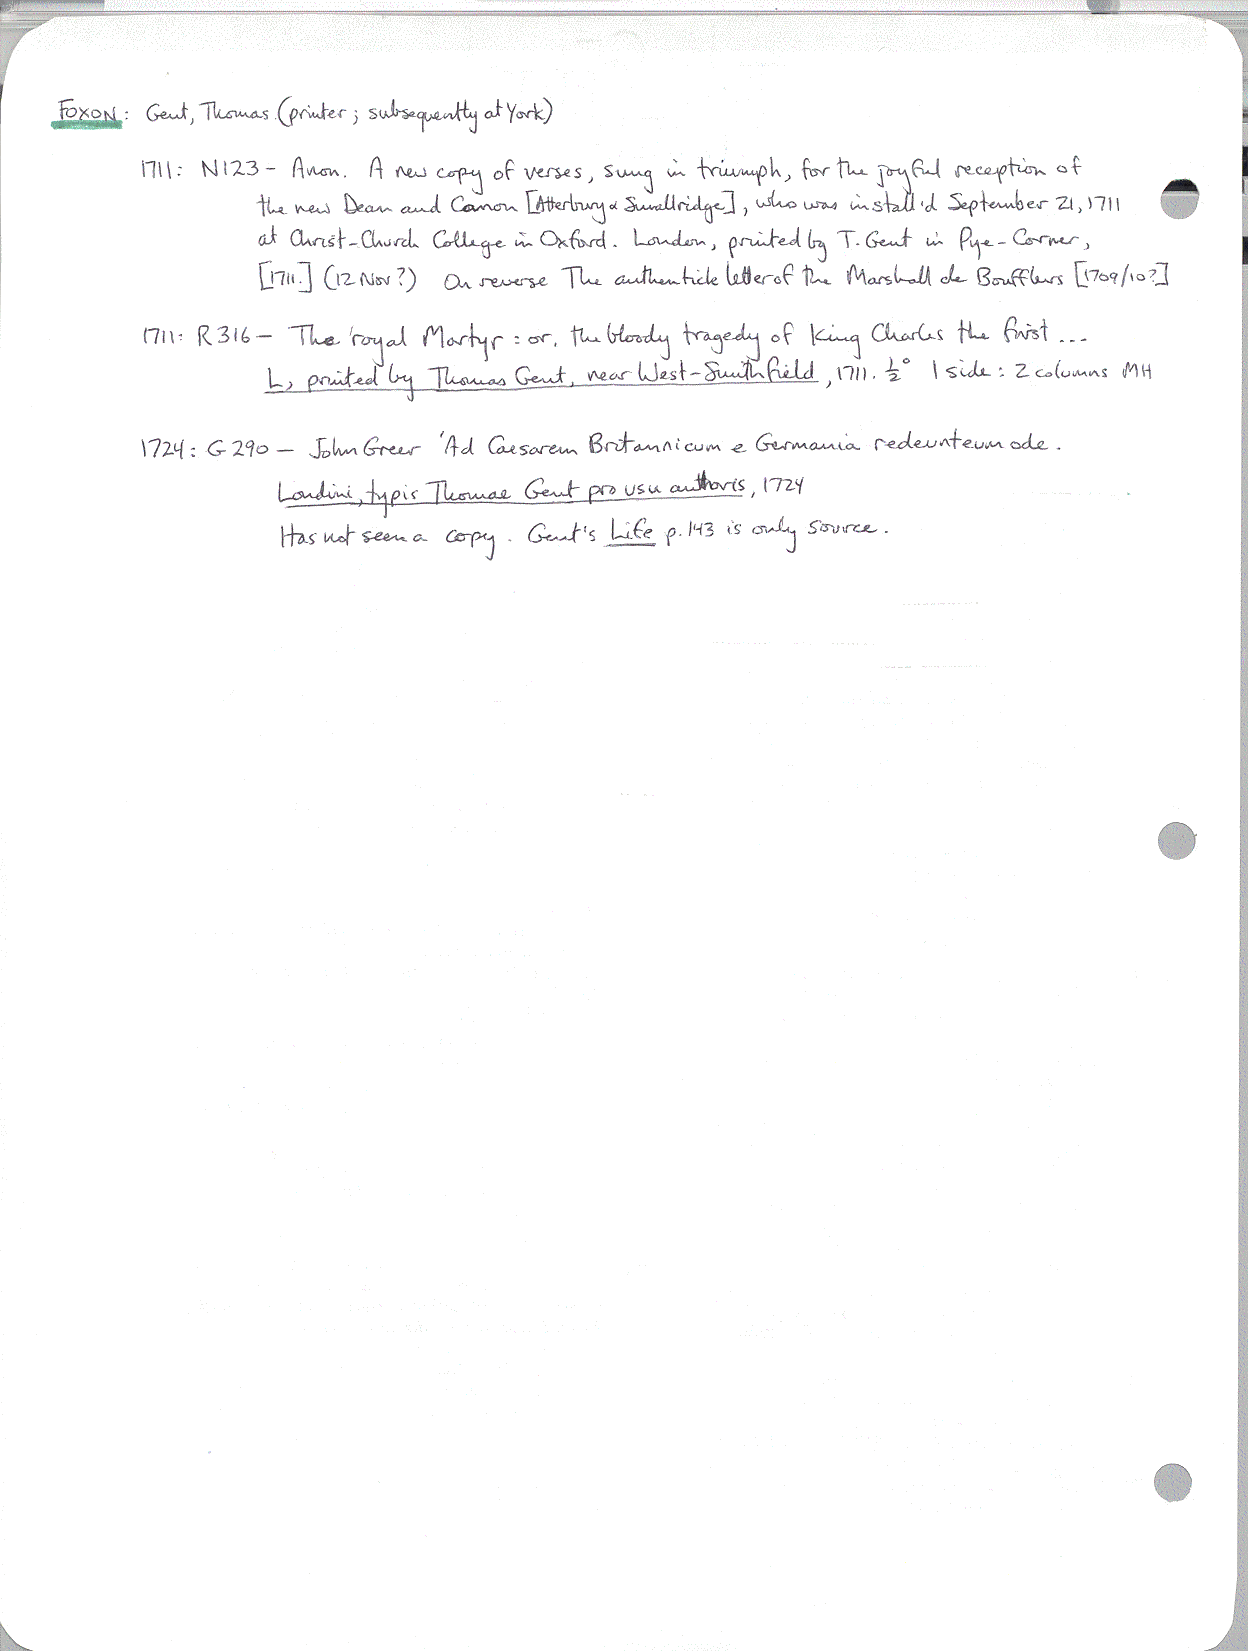 FOXON: Gent, Thomas (printer; subsequently at York)
1711: N123 - Anon. A new copy of verses, sung in triumph, for the joyful reception of
the new Dean and Canon [Atterbury & Smallridge], who was install'd September 21, 1711
at Christ-Church College in Oxford. London, printed by T. Gent in Pye-Corner,
[1711.] (12 Nov?) On reverse The authentick letter of the Marshall de Boufflers [1709/10?]
1711: R316 - The royal Martyr: or, the bloody tragedy of King Charles the first ...
L, printed by Thomas Gent, near West-Smithfield, 1711. ½° 1 side: 2 columns MH
1724: G290 - John Greer 'Ad Caesarem Britannicum e Germania redeuntem ode.
Londini, typis Thomae Gent pro usu authoris, 1724
Has not seen a copy. Gent's Life p.143 is only source.